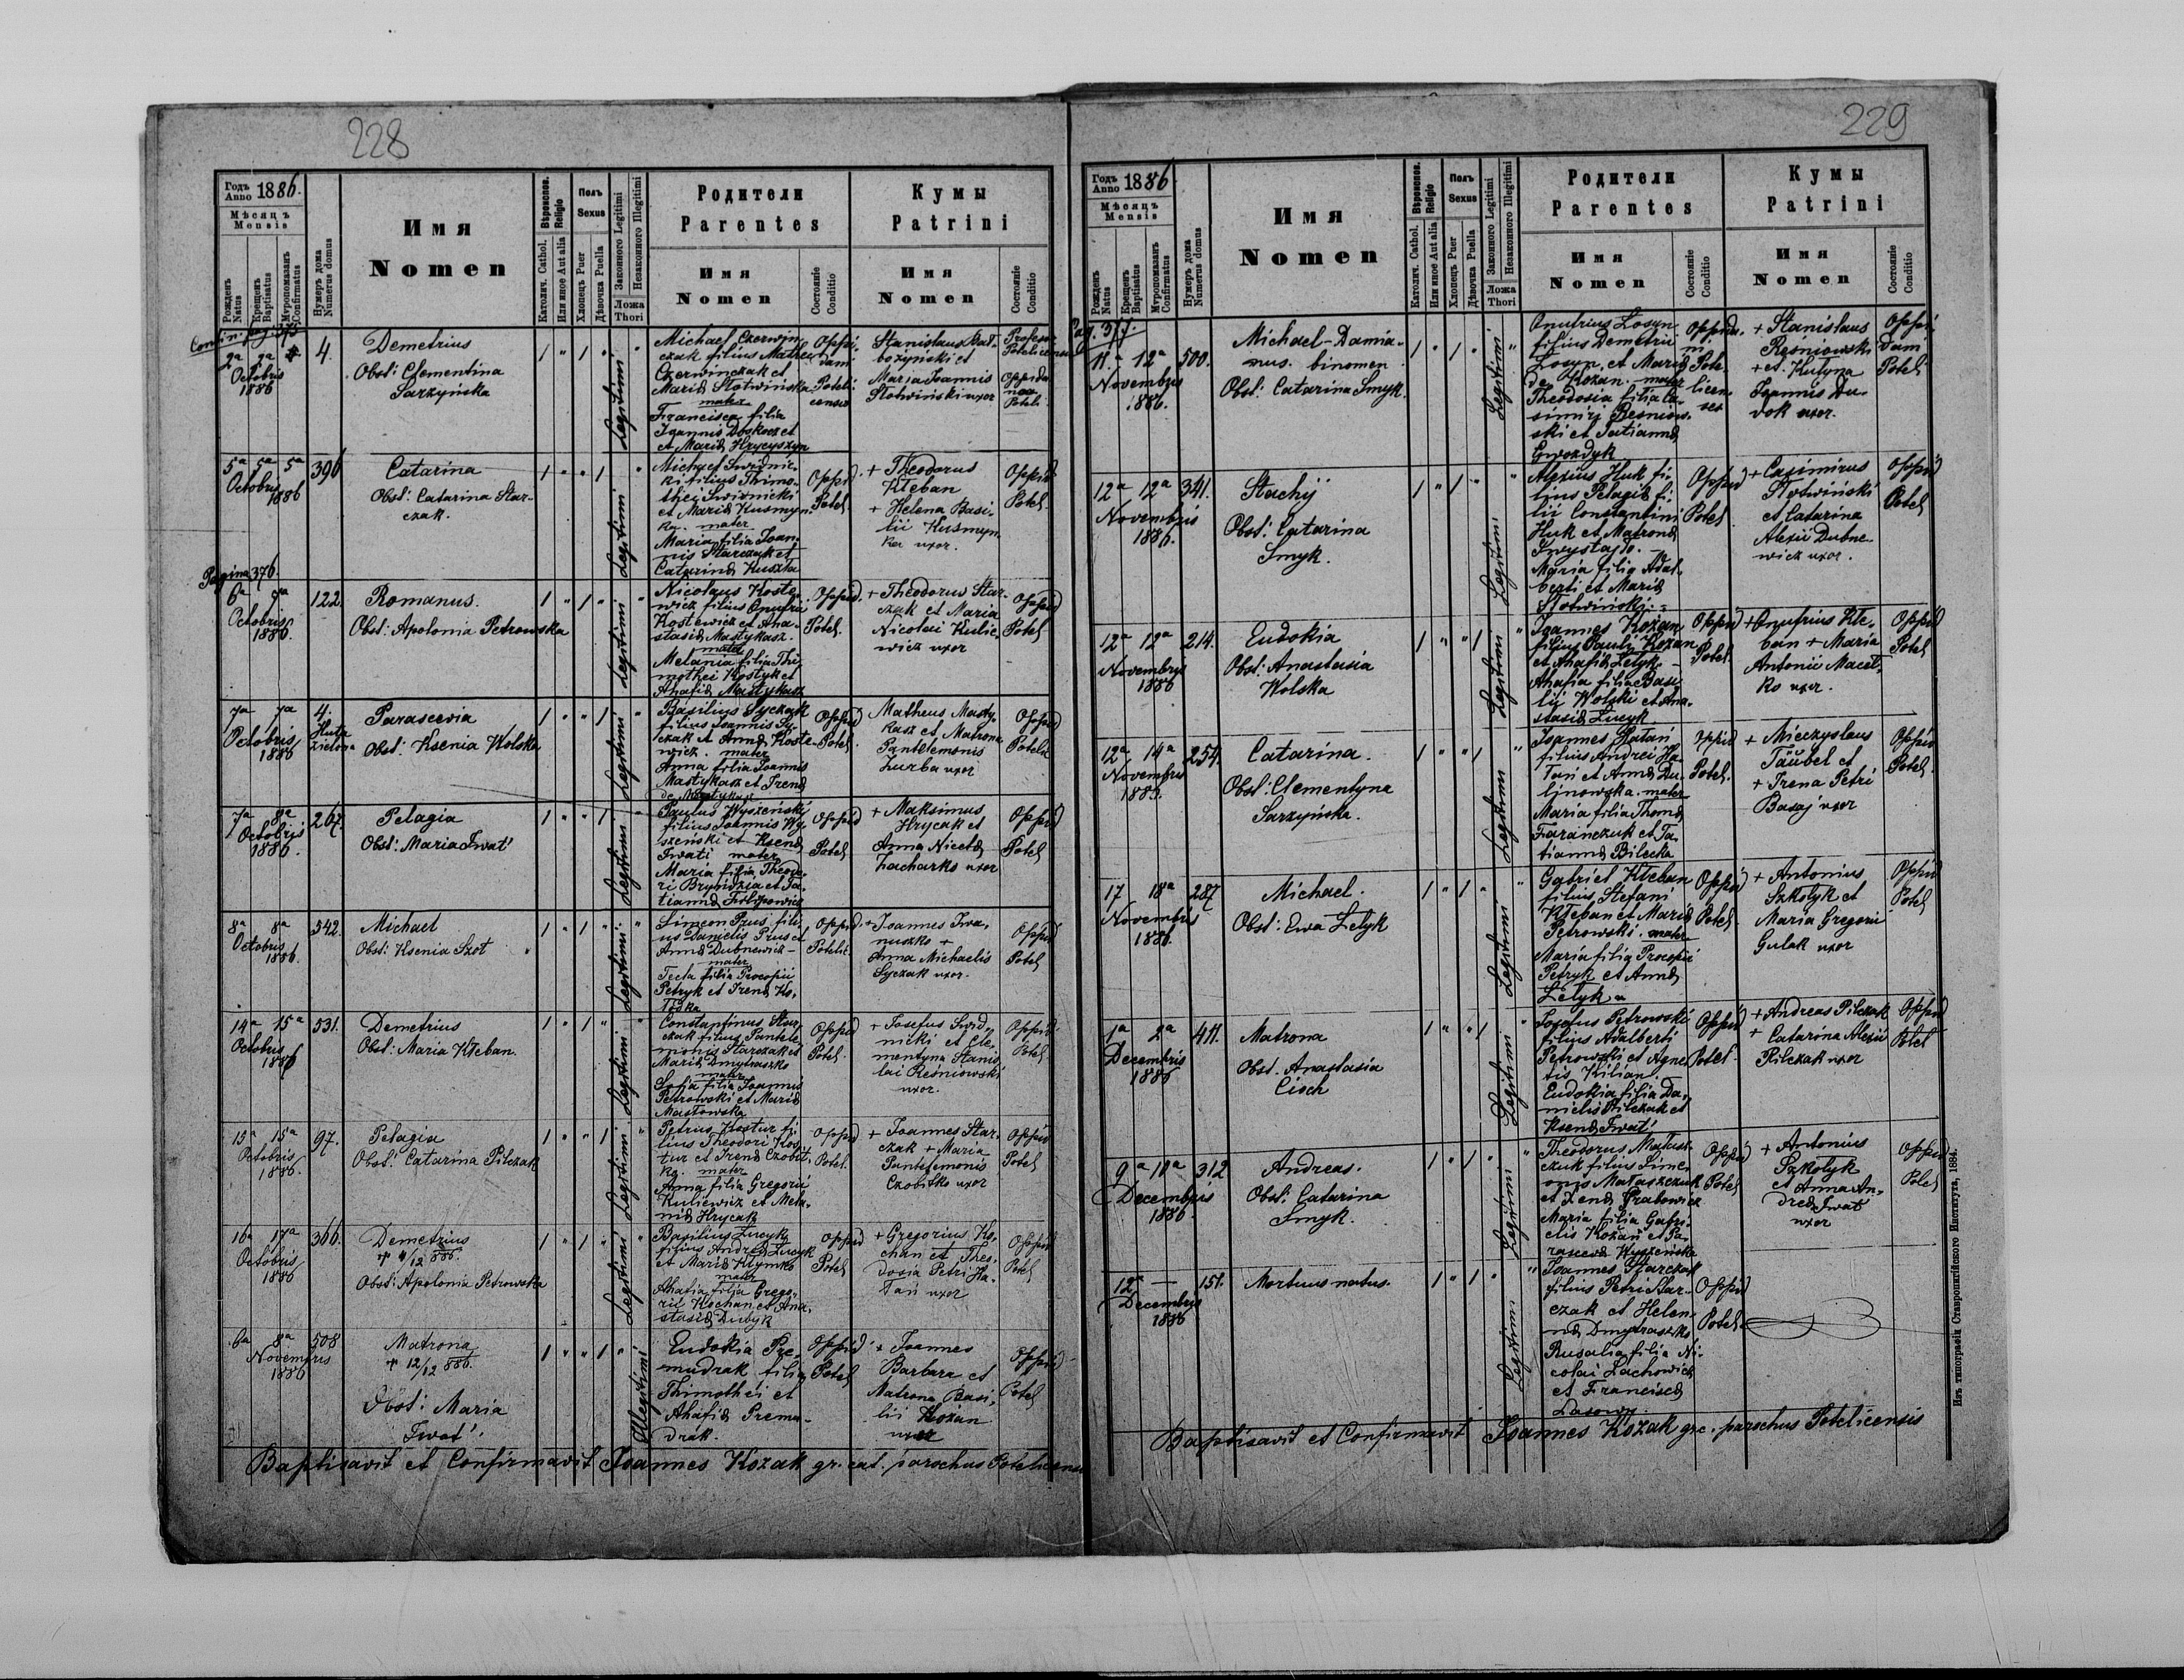 228
Годъ Anno 1886.
Мѣсяцъ Mensis
Рожденъ Natus
Крещенъ Baptisatus
Муропомазанъ Confirmatus
Нумеръ дома Numerus domus
Имя
Nomen
Вѣроиспов. Religio
Католич. Cathol.
Или иное Aut alia
Полъ Sexus
Хлопецъ Puer
Дѣвочка Puella
Законного Legitimi
Незаконного Illegitimi
Ложа Thori
Родители
Parentes
Имя
Nomen
Состояніе Conditio
Кумы
Patrini
Имя
Nomen
Состояніе Conditio
2a 2a
Octobris
1886
4.
Demetrius
Obst: Clementina
Sarzyńska
Legitimi
Michael Czerwin
czak filius Mathei
Czerwinczak et
Mariæ Słotwińska
mater
Francisca filia
Joannis Doskocz et
et Mariæ Hrycyszyn
Stanislaus
et
Maria Joannis
Słotwiński uxor
5a 5a 5a
Octobris
1886
396
Catarina
Obst: Catarina Star-
czak.
Legitimi
Michael Swidnic-
ki filius Thimo-
thei Swidnicki
et Mariæ Kusmyn-
ka. mater
Maria filia Joan-
nis Starczak et
Catarinæ Kuszta
Oppid.
Potel.
+ Theodorus
Kłeban
+ Helena Basi-
lii Kusmyn-
ka uxor.
Oppid
Potel.
Pagina 376.
6a 7a
Octobris
1886.
122.
Romanus.
Obst: Apolonia Petrowska
Legitimi
Nicolaus Koste-
wicz filius Onufrii
Kostewicz et Ana-
stasiæ Mastykasz.
mater
Melania filia Thi-
mothei Kostyk et
Ahafiæ Mastykasz
Oppid.
Potel.
+ Theodorus Star-
czak et Maria
Nicolai Kulic-
wicz uxor
Oppid
Potel
7a 7a
Octobris
1886
4.
Huta
Zielona
Parascevia
Obst: Ksenia Wolska
Legitimi
Basilius Syczak
filius Joannis Sy-
czak et Annæ Koste-
wicz. mater
Anna filia Joannis
Mastykasz et Irenæ
Oppid
Potel.
Matheus Masty-
kasz et Matrona
Pantelemonis
Zurba uxor
Oppid
7a 8a
Octobris
1886.
267.
Pelagia
Obst: Maria Iwat'
Legitimi
Paulus Wyszeński
filius Joannis Wy-
szeński et Kseniæ
Iwati mater
Maria filia Theodo-
ri et Ta-
tiannæ Filipowicz
Oppid
Potel
+ Maksimus
Hrycak et
Anna Nicetæ
Zacharko uxor
Oppid
Potel
8a 8a
Octobris
1886.
542.
Michael
Obst: Ksenia Szot
Legitimi
Simeon Prus fili-
us Danielis Prus et
Annæ Dubnewicz-
mater
Tecla filia Procopii
Petryk et Irenæ Ko-
Oppid
Potelic.
+ Joannes Iwa-
nuszko +
Anna Michaelis
Syczak uxor.
Oppid
Potel
14a 15a
Octobris
1886
531.
Demetrius
Obst: Maria Kłeban.
Legitimi
Constantinus Star-
czak filius Pantele-
monis Starczak et
Mariæ Dmytraszko
mater
Sofia filia Joannis
Petrowski et Mariæ
Masłowska
Oppid
Potel.
+ Josefus Swid-
nicki et Cle-
mentyna Stanis-
lai Reśniowski
uxor.
Oppid
Potel
15a 15a
Octobris
1886.
97.
Pelagia
Obst: Catarina Pilczak
Legitimi
Petrus Kostur fi-
lius Theodori Kos-
tur et Irenæ Czobit-
ka. mater
Anna filia Gregorii
Kuliewicz et Mela-
niæ Hrycak
Oppid
Potel.
+ Joannes Star-
czak + Maria
Pantelemonis
Czobitko uxor
Oppid
Potel
16a 17a
Octobris
1886
366.
Demetrius
Obst: Apolonia Petrowska
Legitimi
Basilius Lucyk
filius Andreæ Lucyk
et Mariæ Klymko
mater
Ahafia filia Grego-
rii Kochan et Ana-
stasiæ Dubyk
Oppid
Potel
+ Gregorius Ko-
chan et Theo-
dosia Petri Ha-
Tań uxor
Oppid
Potel
6a 8a
Novembris
1886
508
Matrona
+ 12/12 886.
Obst: Maria
Iwat'.
Illegitimi
Eudokia Pre-
mudrak filia
Thimothei et
Ahafiæ Premu-
drak.
Oppid
Potel
+ Joannes
Barbara et
Matrona Basi-
lii Kozan
uxor
Oppid
Potel
Baptisavit et Confirmavit Joannes Kozak gr. cat. parochus Potelicensis
229
Годъ Anno 1886.
Мѣсяцъ Mensis
Рожденъ Natus
Крещенъ Baptisatus
Муропомазанъ Confirmatus
Нумеръ дома Numerus domus
Имя
Nomen
Вѣроиспов. Religio
Католич. Cathol.
Или иное Aut alia
Полъ Sexus
Хлопецъ Puer
Дѣвочка Puella
Законного Legitimi
Незаконного Illegitimi
Ложа Thori
Родители
Parentes
Имя
Nomen
Состояніе Conditio
Кумы
Patrini
Имя
Nomen
Состояніе Conditio
Pag. 377.
11.a 12a
Novembris
1886.
500.
Michael-Damia-
nus. binomen
Obst: Catarina Smyk.
Legitimi
Onufrius Losyn
filius Demetrii
Losyn et Mariæ
de Kozan. mater
Theodosia filia Ca-
simiri Resniow-
ski et Tatiannæ
Gwozdyk
+ Stanislaus
Reśniowski
+ et
Joannis Du-
dok uxor.
Oppi-
dani
Potel
12a 12a
Novembris
1886.
341.
Stachij
Obst: Catarina
Smyk.
Legitimi
Alexius Huk fi-
lius Pelagiæ fi-
lii Constantini
Huk et Matronæ
Maria filia Adal-
berti et Mariæ
Słotwiński
Oppid
Potel
+ Casimirus
Słotwiński
et Catarina
Alexii Dubne-
wicz uxor.
Oppid
Potel
12a 12a
Novembris
1886
214.
Eudokia
Obst: Anastasia
Wolska
Legitimi
Joannes Kozan
filius Pauli Kozan
et Ahafiæ Letyk.
Ahafia filia Basi-
lii Wolski et Ana-
stasiæ Lucyk
Oppid
Potel.
+ Onufrius Kłe-
ban + Maria
Antonii Macel-
ko uxor.
Oppid
Potel
12a 14a
Novembris
1886.
254.
Catarina.
Obst: Clementyna
Sarzyńska.
Legitimi
Joannes Hatań
filius Andrei Ha-
Tań et Annæ Du-
linowska. mater
Maria filia Thomæ
Farańczuk et Ta-
tiannæ Bilecka
Oppid
Potel.
+ Mieczyslaus
Täubel et
+ Irena Petri
Basaj uxor
Oppid
Potel.
17 18a
Novembris
1886.
287
Michael.
Obst: Ewa Letyk
Legitimi
Gabriel Kłeban
filius Stefani
Kłeban et Mariæ
Petrowski. mater
Maria filia Procopii
Petryk et Annæ
Letyk
Oppid
Potel.
+ Antonius
Szkolyk et
Maria Gregorii
Gulak uxor
Oppid
Potel
1a 2a
Decembris
1886
411.
Matrona
Obst. Anastasia
Cioch
Legitimi
Josefus Petrowski
filius Adalberti
Petrowski et Agne-
tis Kilian.
Eudokia filia Da-
nielis Pilczak et
Kseniæ Iwat'
Oppid
Potel.
+ Andreas Pilczak
+ Catarina Alexii
Pilczak uxor
Oppid
Potel
9a 11a
Decembris
1886.
312
Andreas.
Obst: Catarina
Smyk.
Legitimi
Theodorus Matasz-
czuk filius Sime-
onis Mataszczuk
et Xeniæ Grabowicz
Maria filia Gabri-
elis Kozan et Pa-
rasceviæ Wyszeńska
Oppid
Potel
+ Antonius
Szkolyk
et Anna An-
dreæ Iwat'
uxor
Oppid
Potel
12a —
Decembris
1886
151.
Mortuus natus.
Legitimi
Joannes Starczak
filius Petri Star-
czak et Hele-
næ Dmytraszko
Rusalia filia Ni-
colai Lachowicz
et Franciscæ
Oppid
Potel.
Baptisavit et Confirmavit Joannes Kozak grc. parochus Potelicensis
Изъ типографіи Ставропигійского Института, 1884.